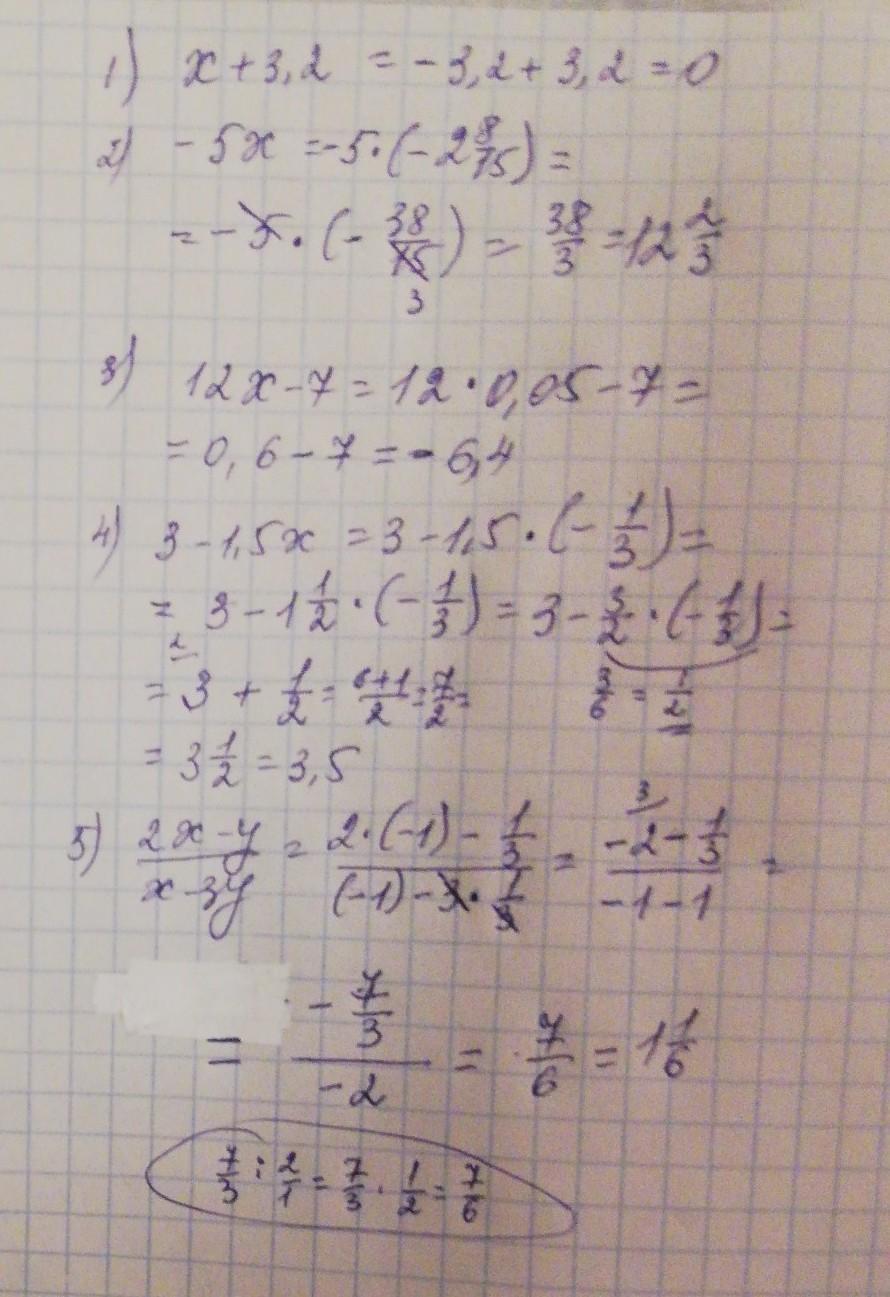 1) x + 3,2 = -3,2 + 3,2 = 0
2) -5x = -5 · (-2 8/15) =
= -5 · (- 38/15) = 38/3 = 12 2/3
3
3) 12x - 7 = 12 · 0,05 - 7 =
= 0,6 - 7 = -6,4
4) 3 - 1,5x = 3 - 1,5 · (- 1/3) =
= 3 - 1 1/2 · (- 1/3) = 3 - 3/2 · (- 1/3) =
2
= 3 + 1/2 = 6+1/2 = 7/2 = 3/6 = 1/2
= 3 1/2 = 3,5
3
5) 2x-y/x-3y = 2·(-1) - 1/3/(-1) - 3 · 1/3 = -2 - 1/3/-1 - 1 =
= - 7/3/-2 = 7/6 = 1 1/6
7/3 : 2/1 = 7/3 · 1/2 = 7/6